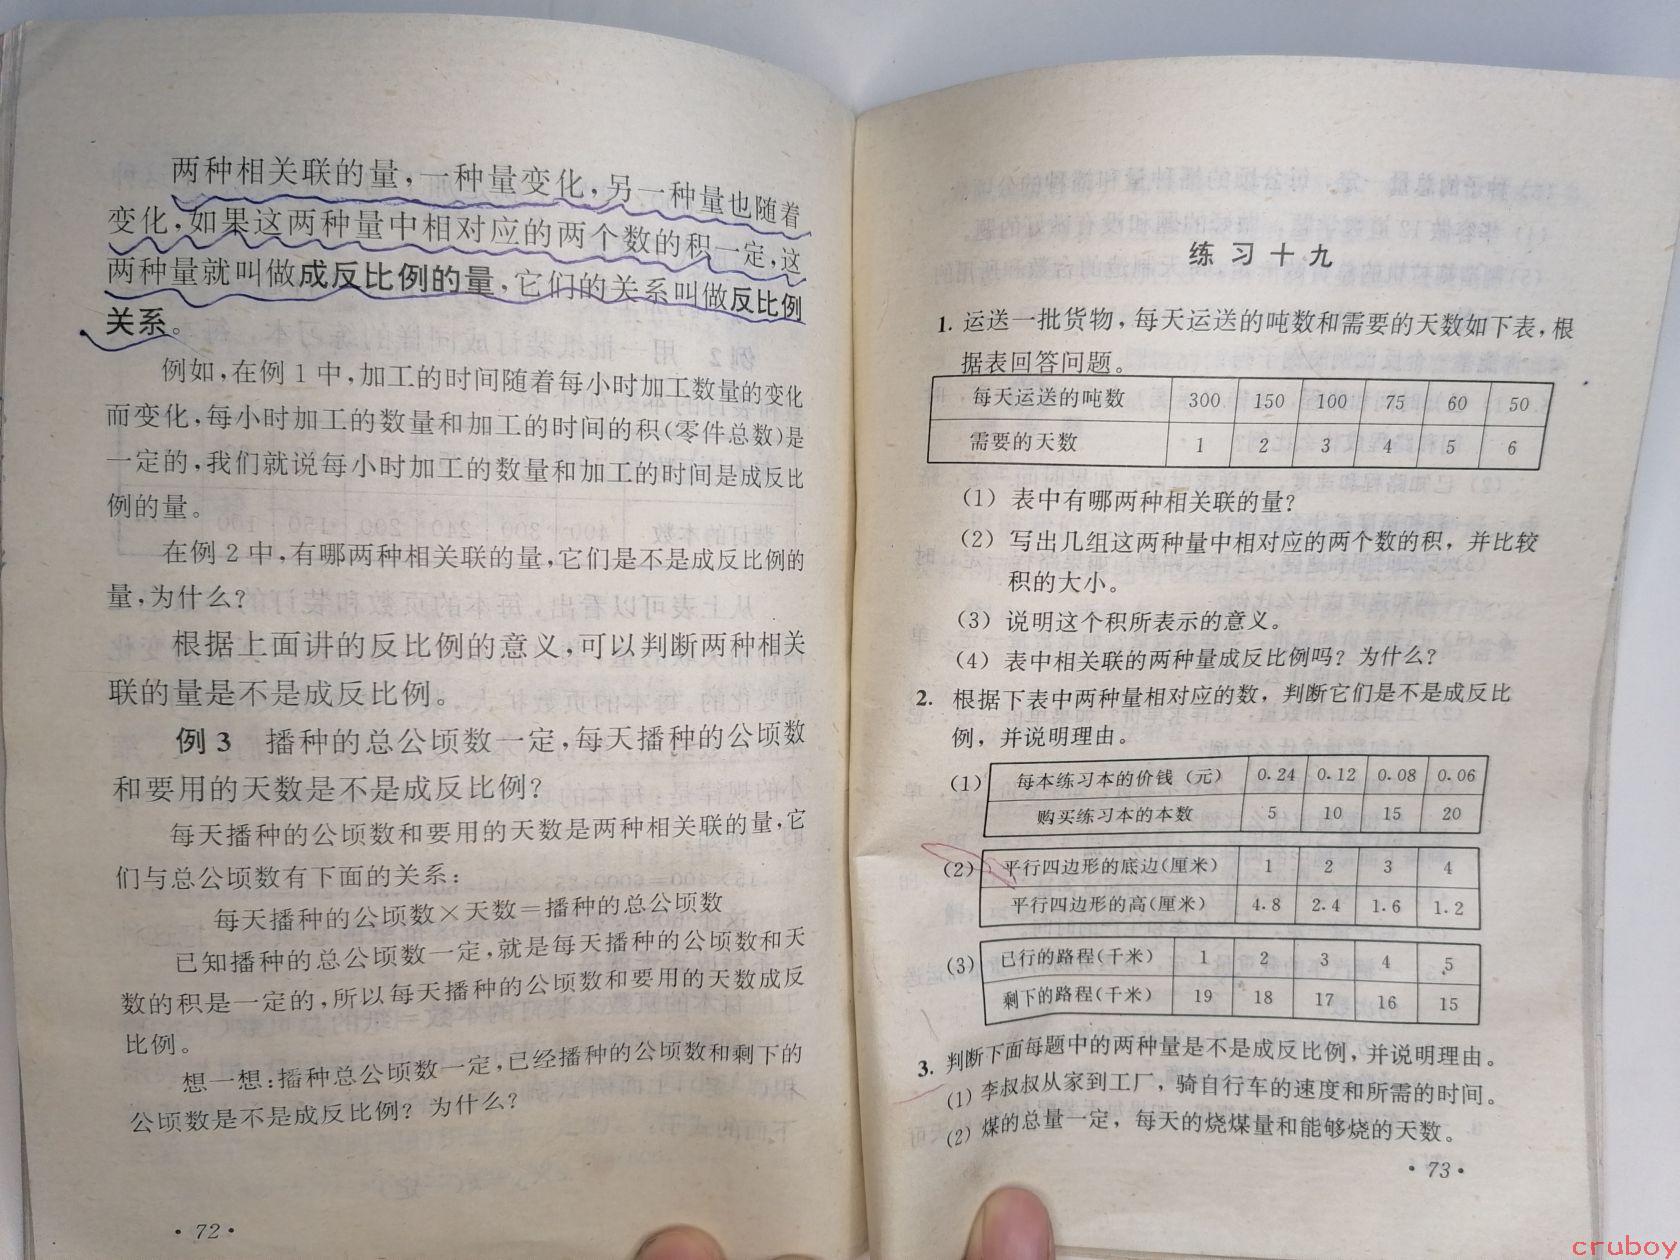 两种相关联的量，一种量变化，另一种量也随着
变化，如果这两种量中相对应的两个数的积一定，这
两种量就叫做成反比例的量，它们的关系叫做反比例
关系。
例如，在例1中，加工的时间随着每小时加工数量的变化
而变化，每小时加工的数量和加工的时间的积（零件总数）是
一定的，我们就说每小时加工的数量和加工的时间是成反比
例的量。
在例2中，有哪两种相关联的量，它们是不是成反比例的
量，为什么？
根据上面讲的反比例的意义，可以判断两种相关
联的量是不是成反比例。
例3 播种的总公顷数一定，每天播种的公顷数
和要用的天数是不是成反比例？
每天播种的公顷数和要用的天数是两种相关联的量，它
们与总公顷数有下面的关系：
每天播种的公顷数×天数＝播种的总公顷数
已知播种的总公顷数一定，就是每天播种的公顷数和天
数的积是一定的，所以每天播种的公顷数和要用的天数成反
比例。
想一想：播种总公顷数一定，已经播种的公顷数和剩下的
公顷数是不是成反比例？为什么？
·72·
练习十九
1. 运送一批货物，每天运送的吨数和需要的天数如下表，根
据表回答问题。
每天运送的吨数 300 150 100 75 60 50
需要的天数 1 2 3 4 5 6
（1）表中有哪两种相关联的量？
（2）写出几组这两种量中相对应的两个数的积，并比较
积的大小。
（3）说明这个积所表示的意义。
（4）表中相关联的两种量成反比例吗？为什么？
2. 根据下表中两种量相对应的数，判断它们是不是成反比
例，并说明理由。
（1） 每本练习本的价钱（元） 0.24 0.12 0.08 0.06
购买练习本的本数 5 10 15 20
（2） 平行四边形的底边（厘米） 1 2 3 4
平行四边形的高（厘米） 4.8 2.4 1.6 1.2
（3） 已行的路程（千米） 1 2 3 4 5
剩下的路程（千米） 19 18 17 16 15
3. 判断下面每题中的两种量是不是成反比例，并说明理由。
（1）李叔叔从家到工厂，骑自行车的速度和所需的时间。
（2）煤的总量一定，每天的烧煤量和能够烧的天数。
·73·
cruboy